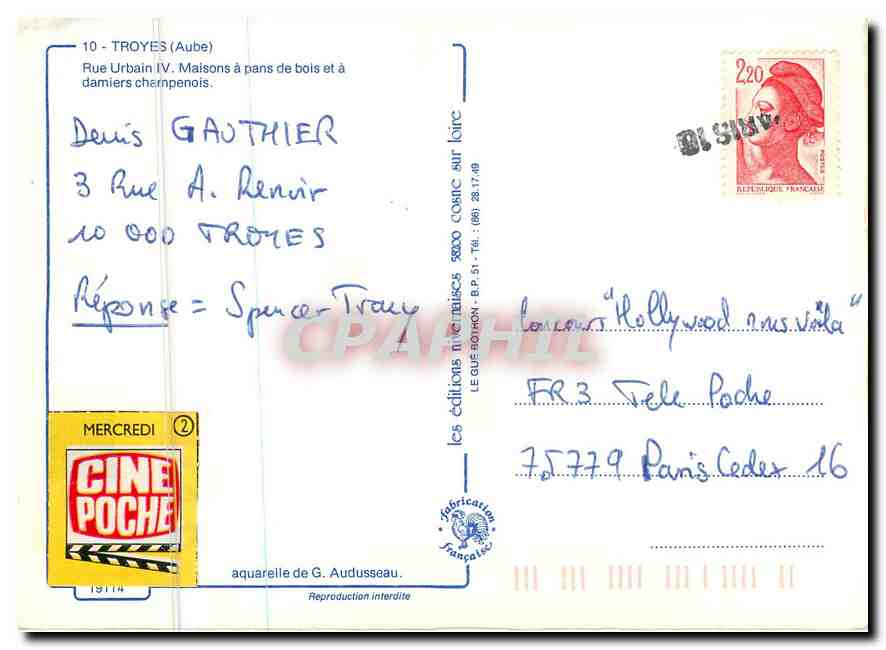 10 - TROYES (Aube)
Rue Urbain IV. Maisons à pans de bois et à
damiers champenois.
Denis GAUTHIER
3 Rue A. Renoir
10 000 TROYES
Réponse = Spencer Tracy
MERCREDI 2
CINE
POCHE
19114
aquarelle de G. Audusseau.
Reproduction interdite
les éditions nivernaises 58200 cosne sur loire
LE GUÉ BOTHON - B.P. 51 - Tél. : (86) 28.17.49
fabrication
française
2,20
POSTES
REPUBLIQUE FRANÇAISE
ARIS 10
Concours "Hollywood nous voila"
FR3 Tele Poche
75779 Paris Cedex 16
CPAPHIL